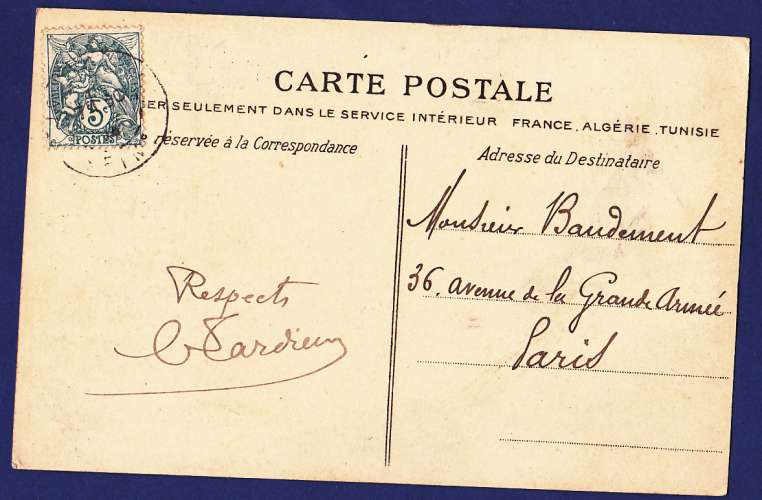 CARTE POSTALE
SER SEULEMENT DANS LE SERVICE INTÉRIEUR FRANCE, ALGÉRIE, TUNISIE
réservée à la Correspondance
Adresse du Destinataire
5c
POSTES
Monsieur Baudement
36. avenue de la Grande Armée
Paris
Respects
Tardieu